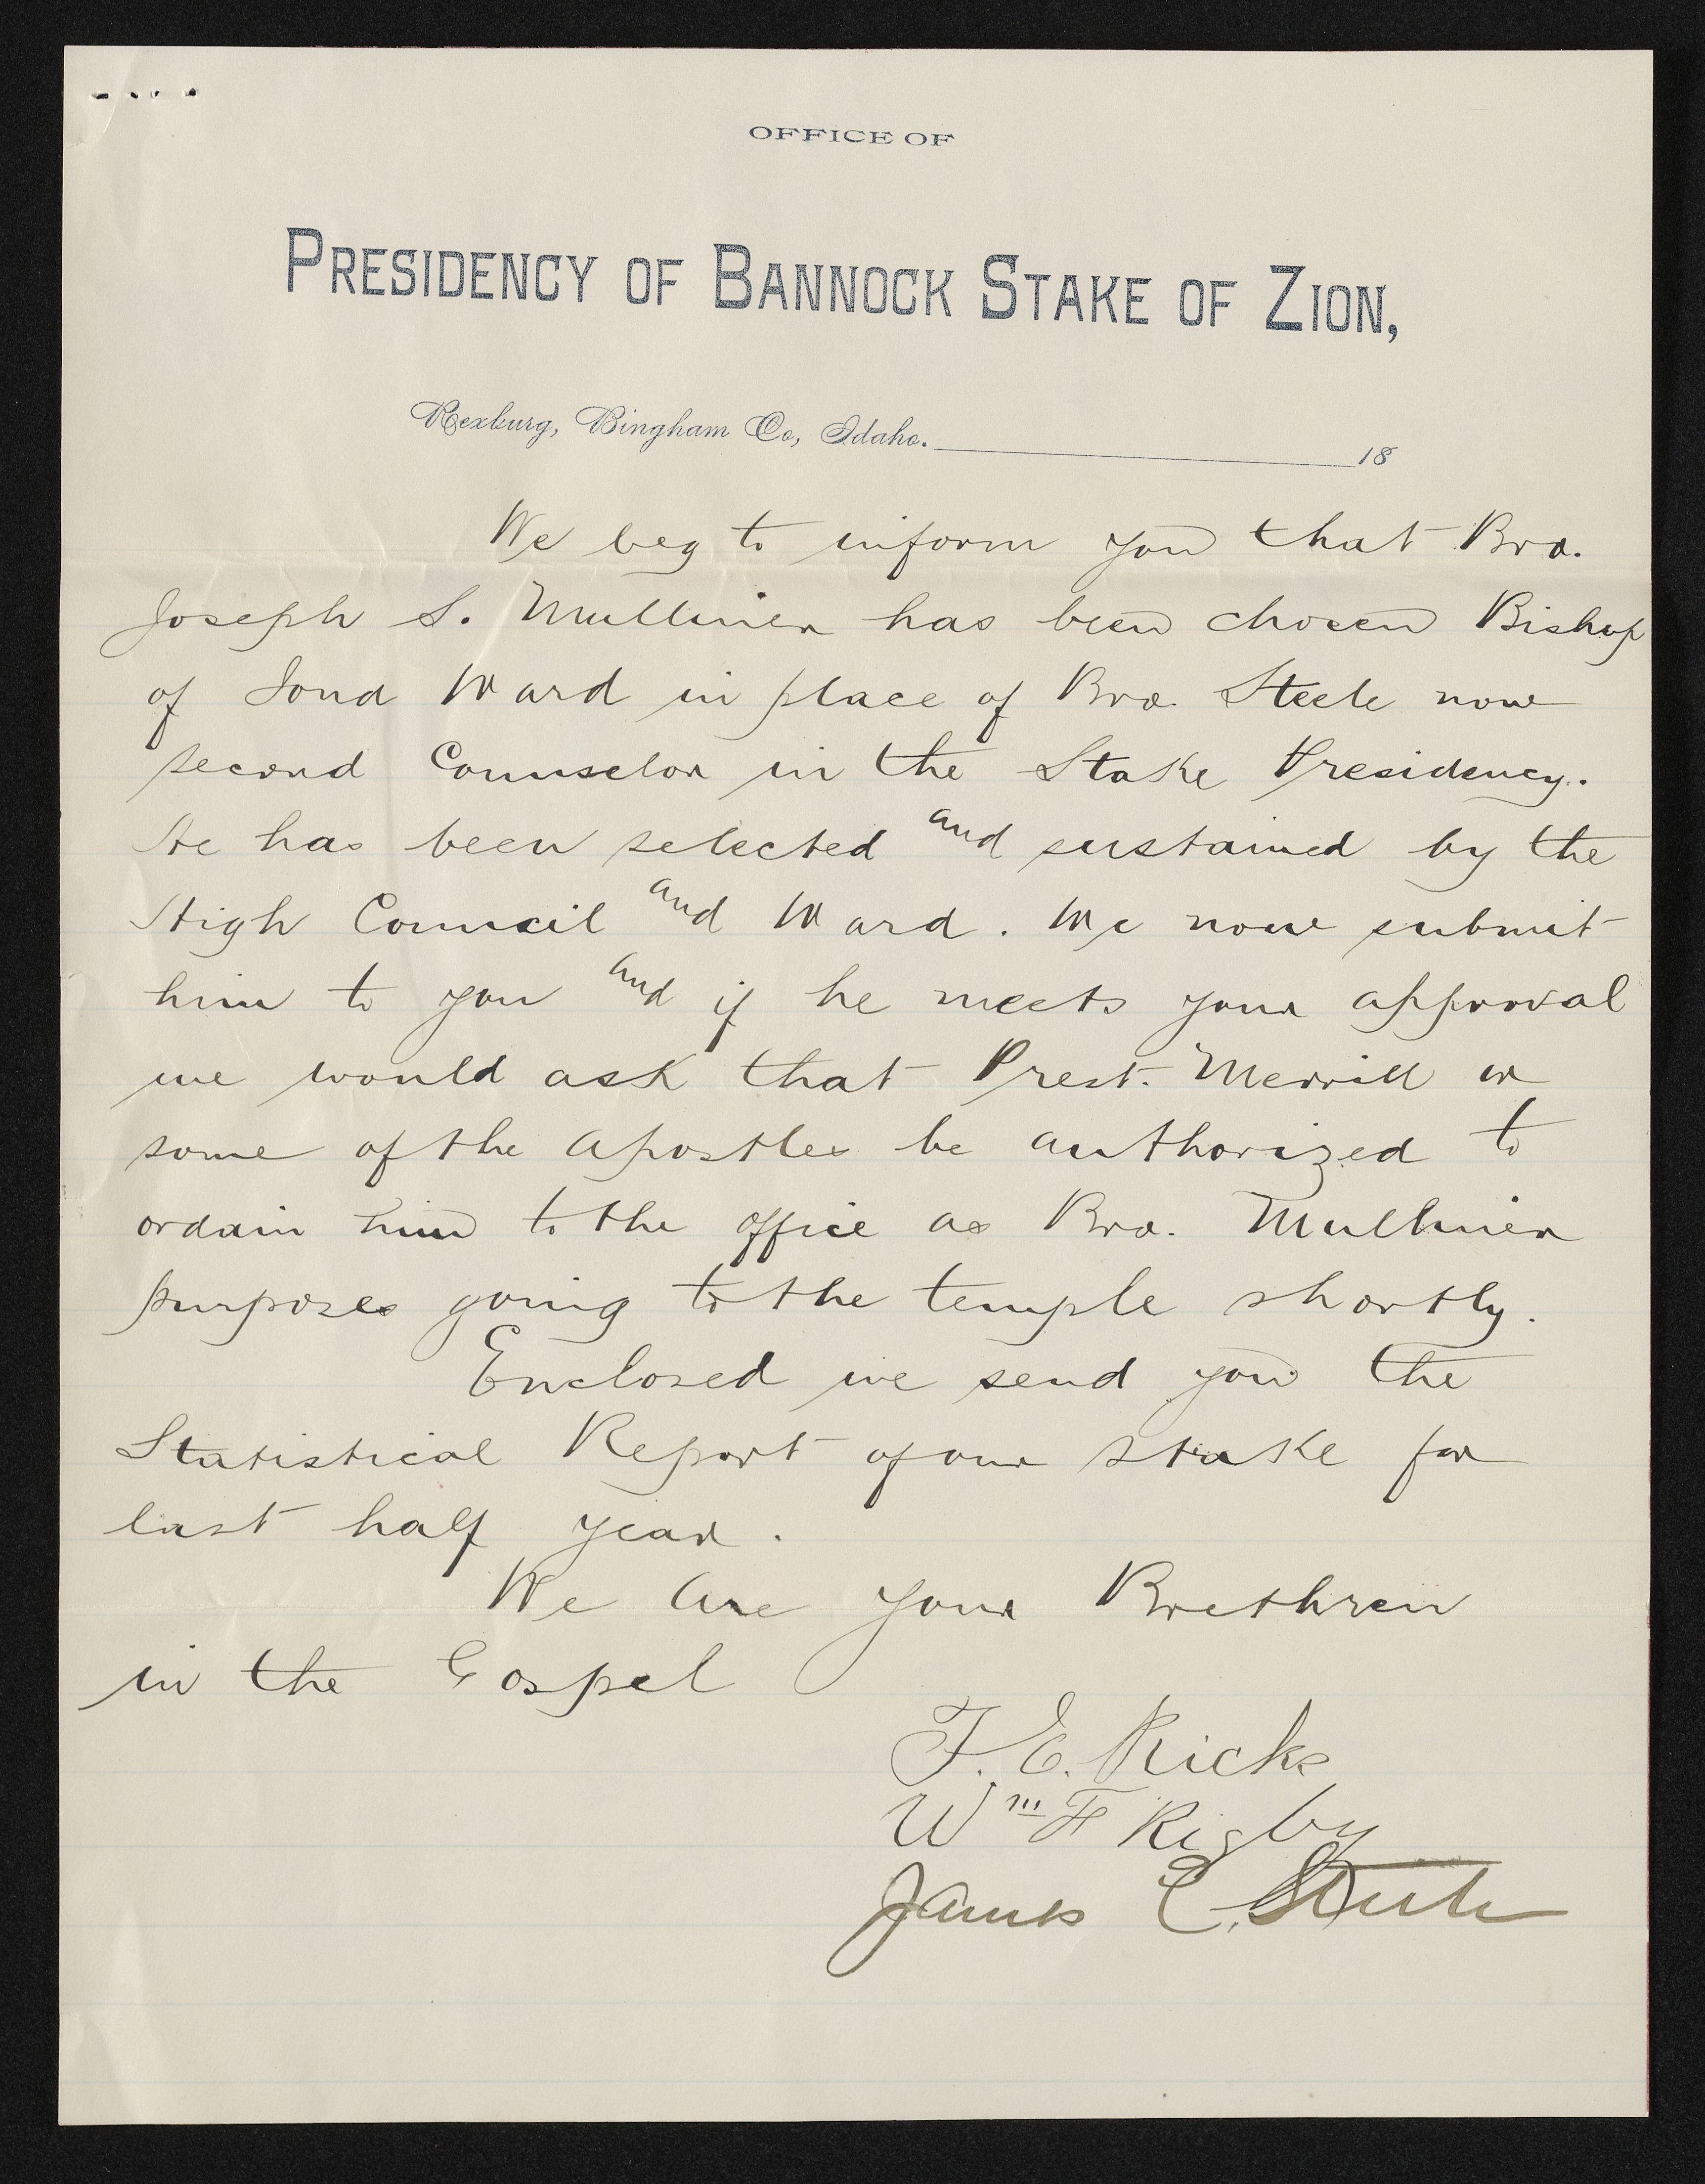 OFFICE OF
PRESIDENCY OF BANNOCK STAKE OF ZION,
Rexburg, Bingham Co, Idaho. 18
We beg to inform you that Bro.
Joseph S. Mulliner has been chosen Bishop
of Iona Ward in place of Bro. Steele now
second Counselor in the Stake Presidency.
He has been selected and sustained by the
High Council and Ward. We now submit
him to you and if he meets your approval
we would ask that Prest. Merrill or
some of the Apostles be authorized to
ordain him to the office as Bro. Mulliner
purposes going to the temple shortly.
Enclosed we send you the
Statistical Report of our stake for
last half year.
We are your Brethren
in the Gospel
T. E. Ricks
Wm F Rigby
James E. Steele